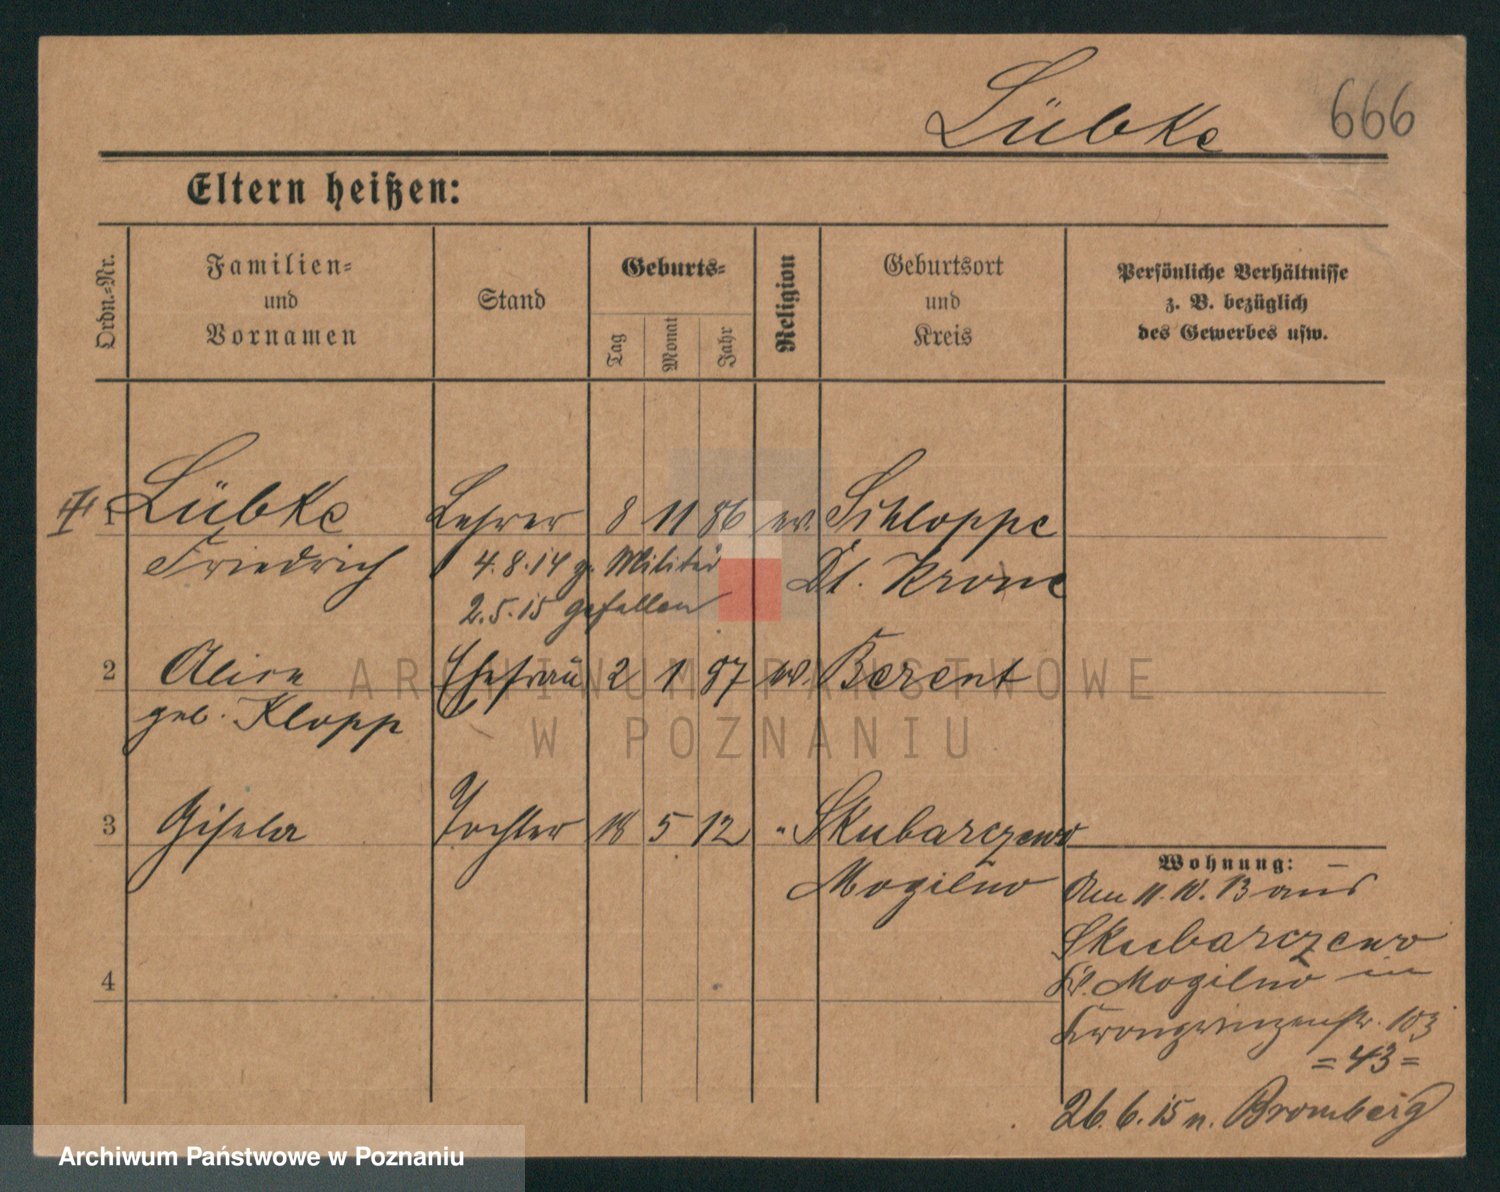 Lübke 666
Eltern heißen:
Ordn.=Nr.
Familien=
und
Vornamen
Stand
Geburts=
Tag
Monat
Jahr
Religion
Geburtsort
und
Kreis
Persönliche Verhältnisse
z. B. bezüglich
des Gewerbes usw.
1 Lübke Lehrer 8 11 86 ev. Schloppe
Friedrich 4.8.14 z. Militär Dt. Krone
2.5.15 gefallen
2 Alice Ehefrau 2 1 87 ev. Berent
geb. Klopp
3 Gisela Tochter 18 5 12 " Skubarczewo
Mogilno
Wohnung:
Am 11.10.13 aus
Skubarczewo
Kr. Mogilno in
Kronprinzenstr. 103
=43=
4
26.6.15 n. Bromberg
ARCHIWUM PAŃSTWOWE
W POZNANIU
Archiwum Państwowe w Poznaniu